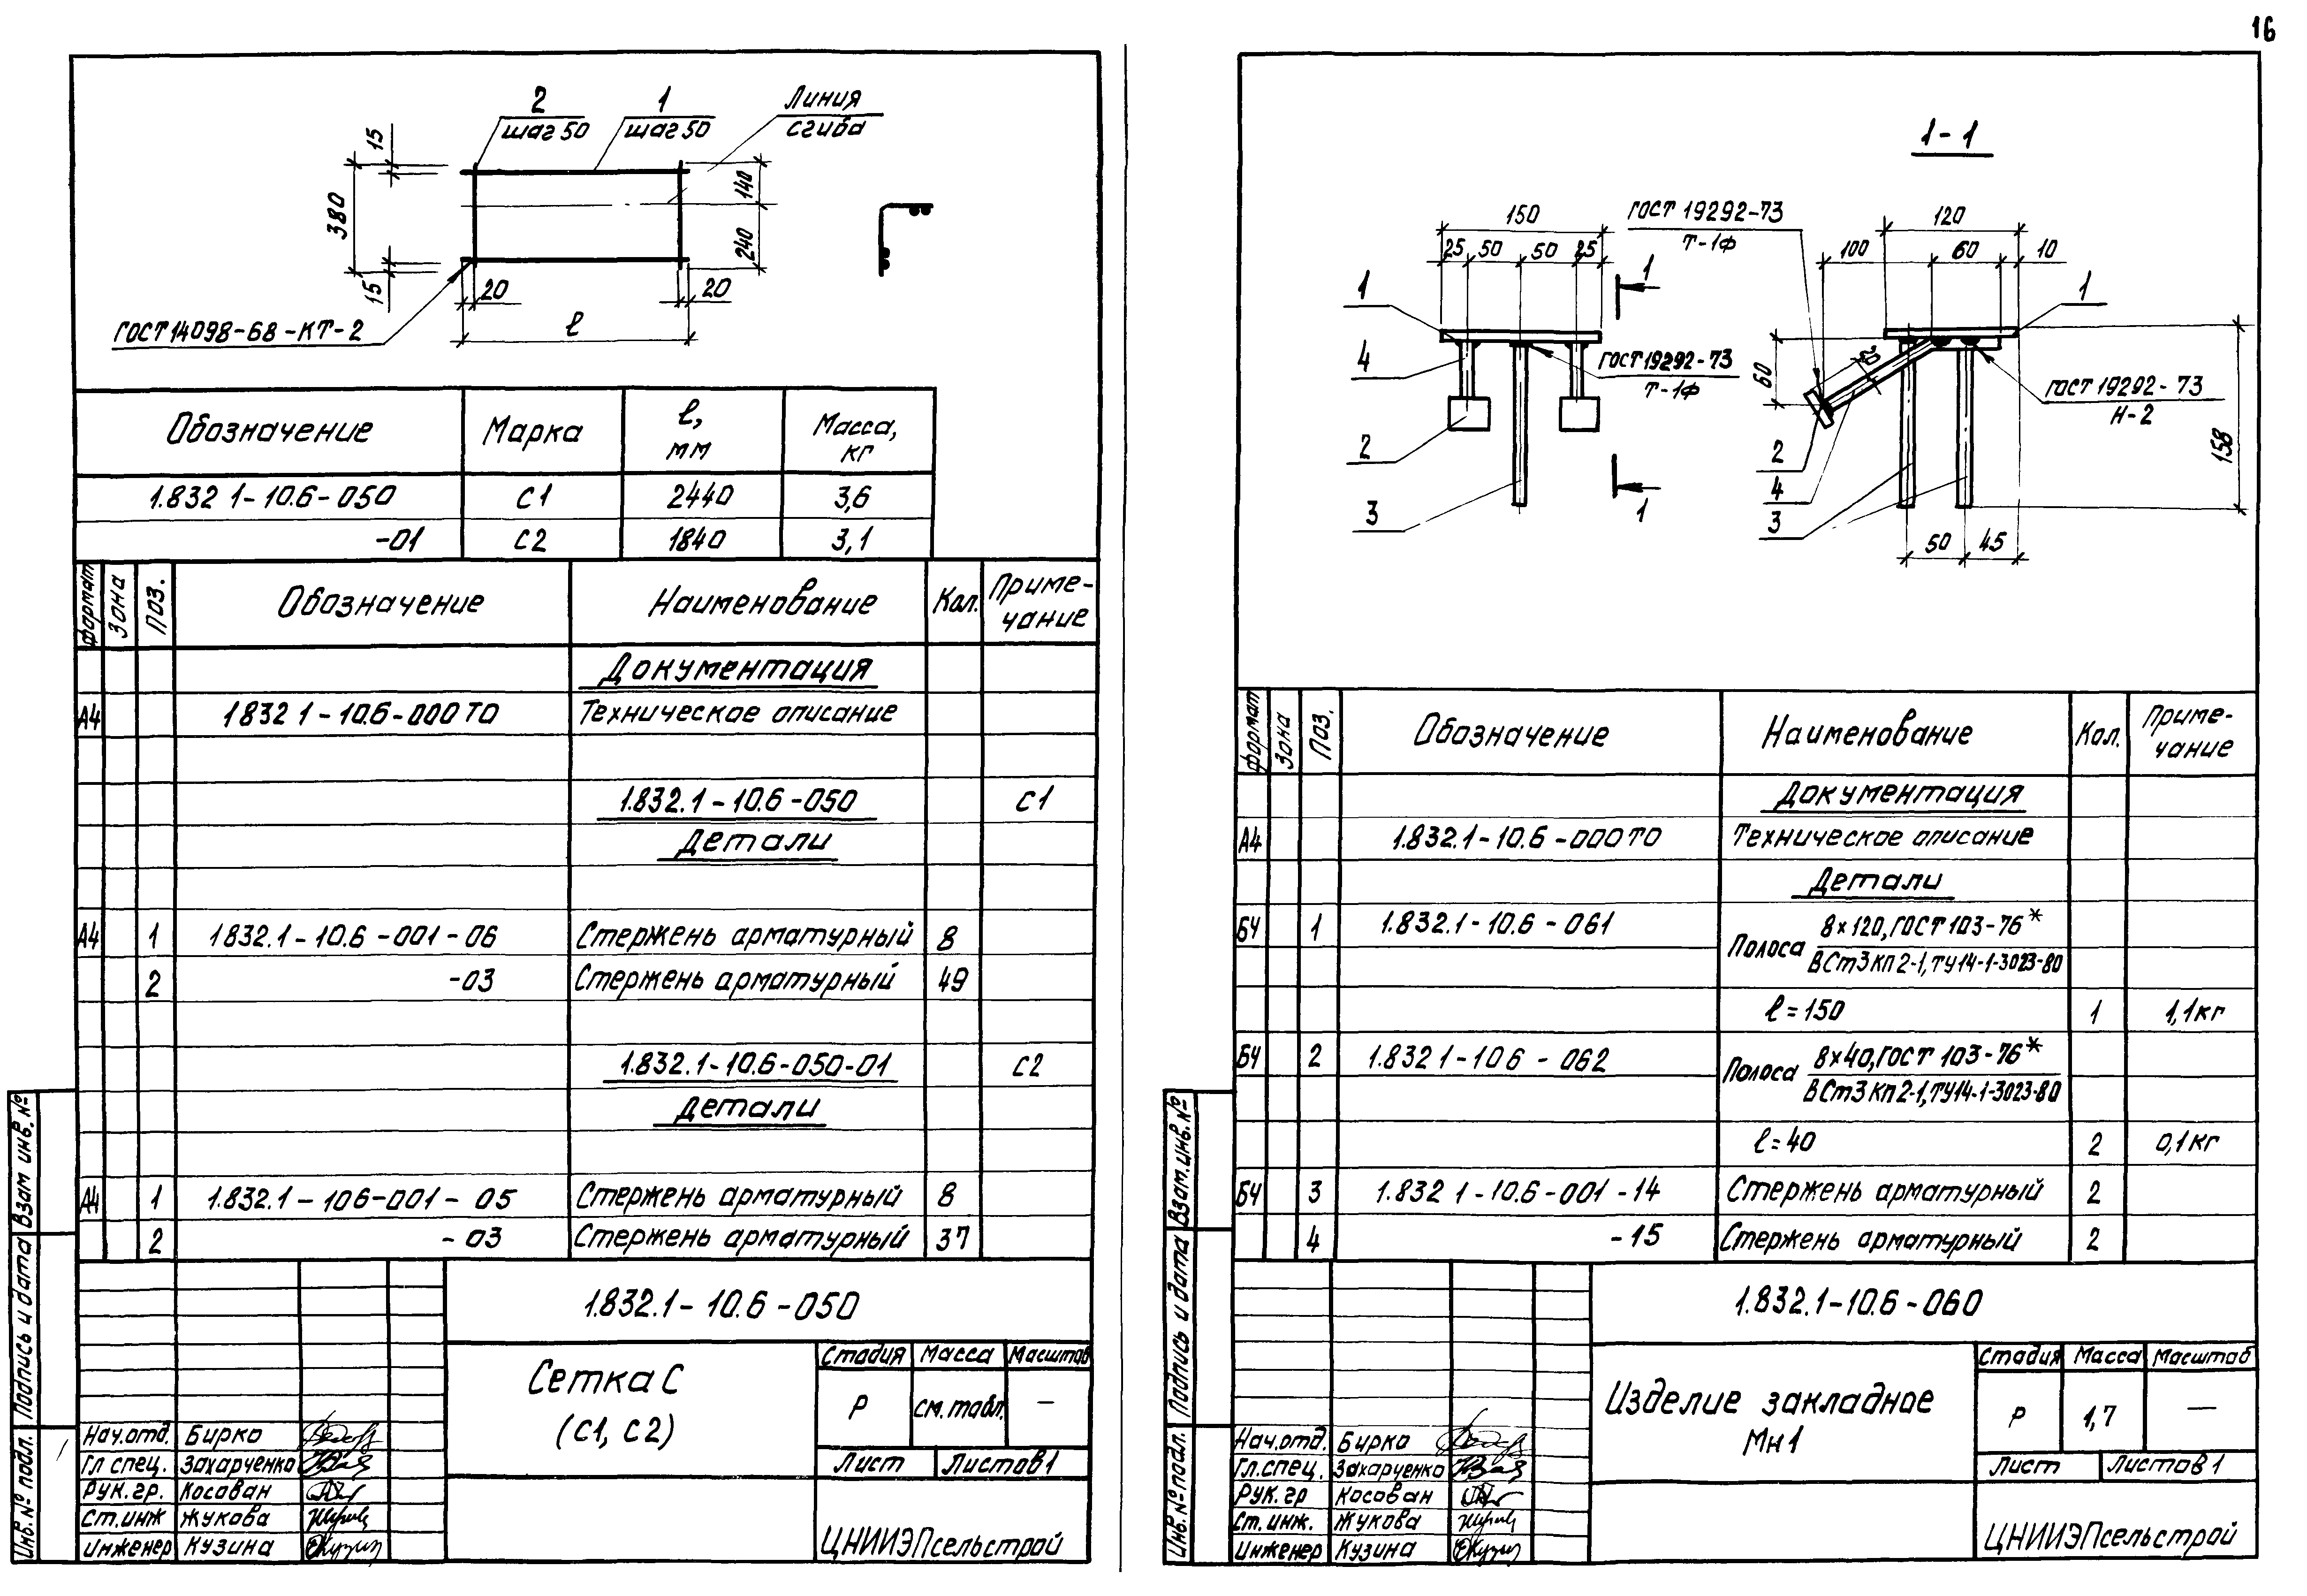 16
2
шаг 50
1
шаг 50
Линия
сгиба
15
380
15
140
240
20
20
ℓ
ГОСТ 14098-68-КТ-2
Обозначение
Марка
ℓ, мм
Масса, кг
1.832 1-10.6-050 С1 2440 3,6
-01 С2 1840 3,1
Формат
Зона
Поз.
Обозначение
Наименование
Кол.
Приме-
чание
Документация
А4 1832 1-10.6-000ТО Техническое описание
1.832.1-10.6-050 С1
Детали
А4 1 1832.1-10.6-001-06 Стержень арматурный 8
2 -03 Стержень арматурный 49
1.832.1-10.6-050-01 С2
Детали
А4 1 1.832.1-106-001-05 Стержень арматурный 8
2 -03 Стержень арматурный 37
1.832.1-10.6-050
Сетка С
(С1, С2)
Стадия Масса Масштаб
Р см.табл. —
Лист Листов 1
ЦНИИЭПсельстрой
Нач.отд. Бирко
Гл спец. Захарченко
Рук.гр. Косован
Ст.инж Жукова
Инженер Кузина
Взам инв.№
Подпись и дата
Инв.№ подл.
1-1
150
25 50 50 25
1
1
1
4
2
3
ГОСТ 19292-73
Т-1ф
ГОСТ 19292-73
Т-1ф
120
100 60 10
1
60
158
ГОСТ 19292-73
Н-2
2
4
3
50 45
Формат
Зона
Поз.
Обозначение
Наименование
Кол.
Приме-
чание
Документация
А4 1.832.1-10.6-000ТО Техническое описание
Детали
БЧ 1 1.832.1-10.6-061 Полоса 8×120, ГОСТ 103-76*
ВСт3кп2-1, ТУ14-1-3023-80
ℓ=150 1 1,1кг
БЧ 2 1.832 1-10 6-062 Полоса 8×40, ГОСТ 103-76*
ВСт3кп2-1, ТУ14-1-3023-80
ℓ=40 2 0,1кг
БЧ 3 1.832 1-10.6-001-14 Стержень арматурный 2
4 -15 Стержень арматурный 2
1.832.1-10.6-060
Изделие закладное
Мн1
Стадия Масса Масштаб
Р 1,7 —
Лист Листов 1
ЦНИИЭПсельстрой
Нач.отд. Бирко
Гл.спец. Захарченко
Рук.гр Косован
Ст.инж. Жукова
Инженер Кузина
Взам.инв.№
Подпись и дата
Инв.№ подл.